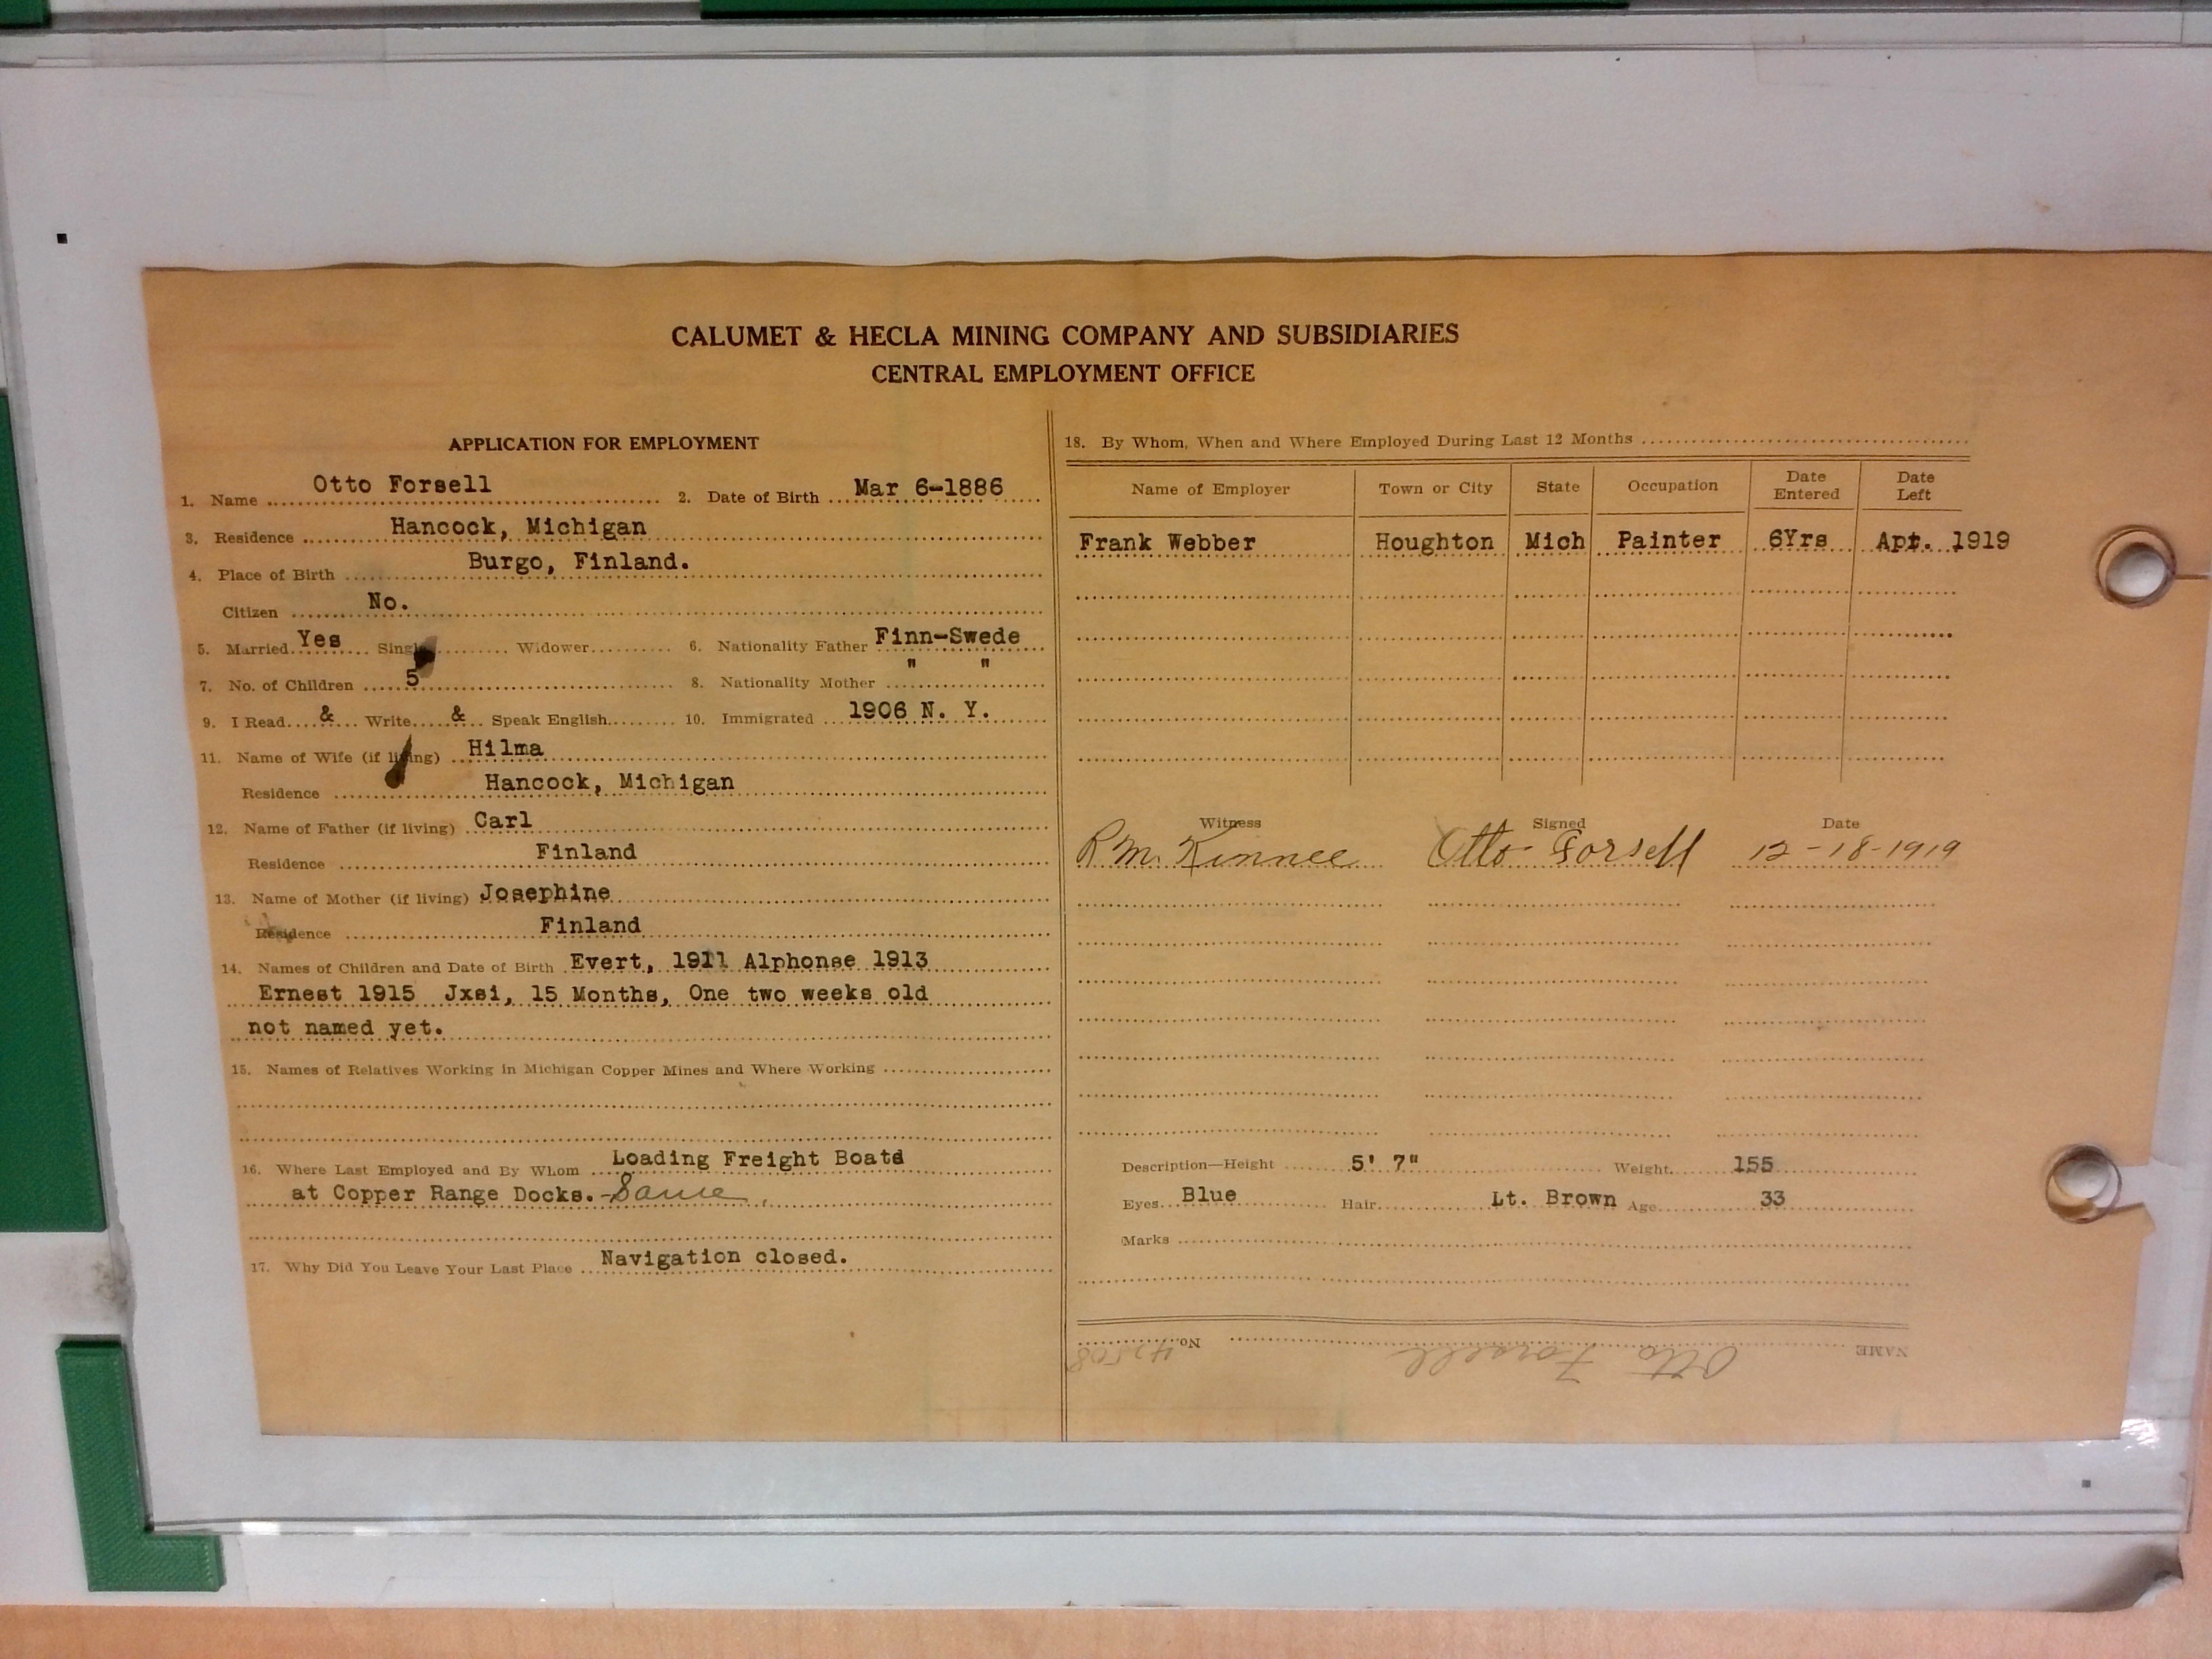 CALUMET & HECLA MINING COMPANY AND SUBSIDIARIES
CENTRAL EMPLOYMENT OFFICE
APPLICATION FOR EMPLOYMENT
1. Name Otto Forsell 2. Date of Birth Mar 6-1886
3. Residence Hancock, Michigan
4. Place of Birth Burgo, Finland.
Citizen No.
5. Married Yes Single Widower 6. Nationality Father Finn-Swede
7. No. of Children 5 8. Nationality Mother " "
9. I Read & Write & Speak English 10. Immigrated 1906 N. Y.
11. Name of Wife (if living) Hilma
Residence Hancock, Michigan
12. Name of Father (if living) Carl
Residence Finland
13. Name of Mother (if living) Josephine
Residence Finland
14. Names of Children and Date of Birth Evert, 1911 Alphonse 1913
Ernest 1915 Jxsi, 15 Months, One two weeks old
not named yet.
15. Names of Relatives Working in Michigan Copper Mines and Where Working
16. Where Last Employed and By Whom Loading Freight Boats
at Copper Range Docks. - Same
17. Why Did You Leave Your Last Place Navigation closed.
18. By Whom, When and Where Employed During Last 12 Months
Name of Employer Town or City State Occupation Date Entered Date Left
Frank Webber Houghton Mich Painter 6Yrs Apr. 1919
Witness Signed Date
R.M. Kinnee Otto Forsell 12-18-1919
Description—Height 5' 7" Weight 155
Eyes Blue Hair Lt. Brown Age 33
Marks
NAME Otto Forsell No. 42508